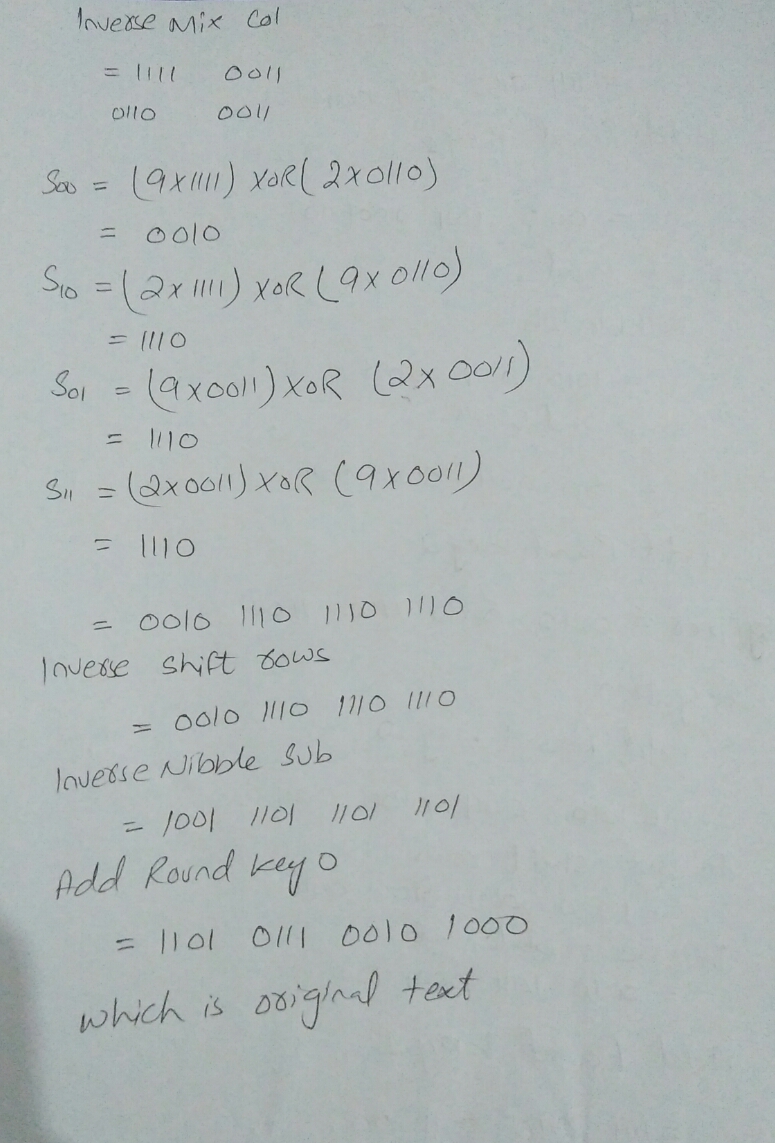 Inverse Mix Col
= 1111 0011
0110 0011
S00 = (9x1111) XOR (2x0110)
= 0010
S10 = (2x1111) XOR (9x0110)
= 1110
S01 = (9x0011) XOR (2x0011)
= 1110
S11 = (2x0011) XOR (9x0011)
= 1110
= 0010 1110 1110 1110
Inverse shift rows
= 0010 1110 1110 1110
Inverse Nibble Sub
= 1001 1101 1101 1101
Add Round key 0
= 1101 0111 0010 1000
which is original text